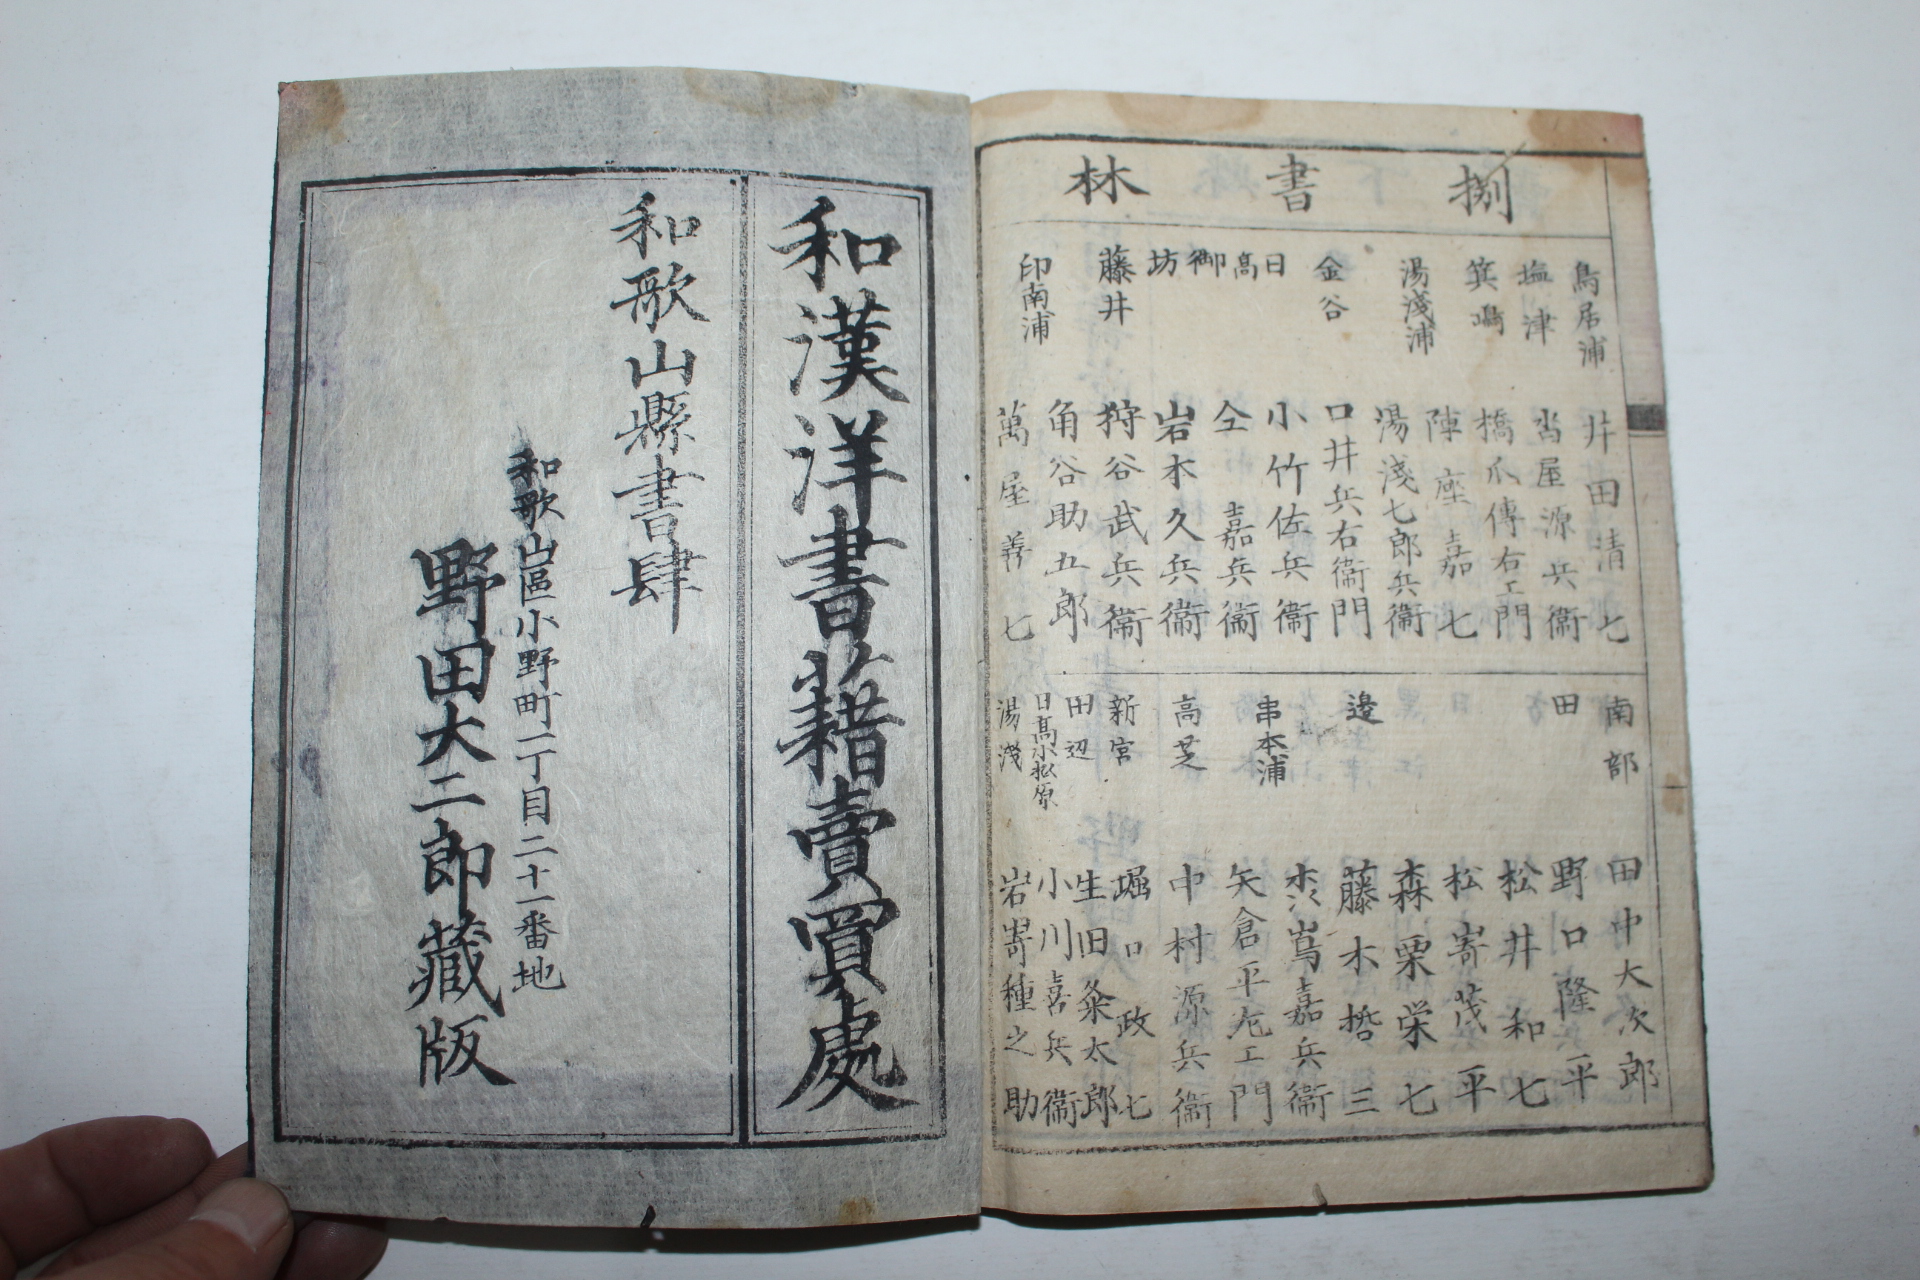 捌書林
鳥居浦 井田清七
塩津 當屋源兵衞
箕嶋 橋爪傳右エ門
陣座嘉七
湯淺浦 湯淺七郎兵衞
金谷 口井兵右衞門
日高 小竹佐兵衞
御坊 仝 嘉兵衞
岩木久兵衞
藤井 狩谷武兵衞
角谷助五郎
印南浦 萬屋善七
南部 田中大次郎
田邊 野口隆平
松井和七
松嵜茂平
森栗栄七
藤木哲三
串本浦 嶌嘉兵衞
矢倉平左エ門
高芝 中村源兵衞
新宮 堀口政七
田辺 生田粂太郎
日高小松原 小川喜兵衞
湯淺 岩嵜種之助
和漢洋書籍賣買處
和歌山縣書肆
和歌山區小野町一丁目二十一番地
野田大二郎藏版